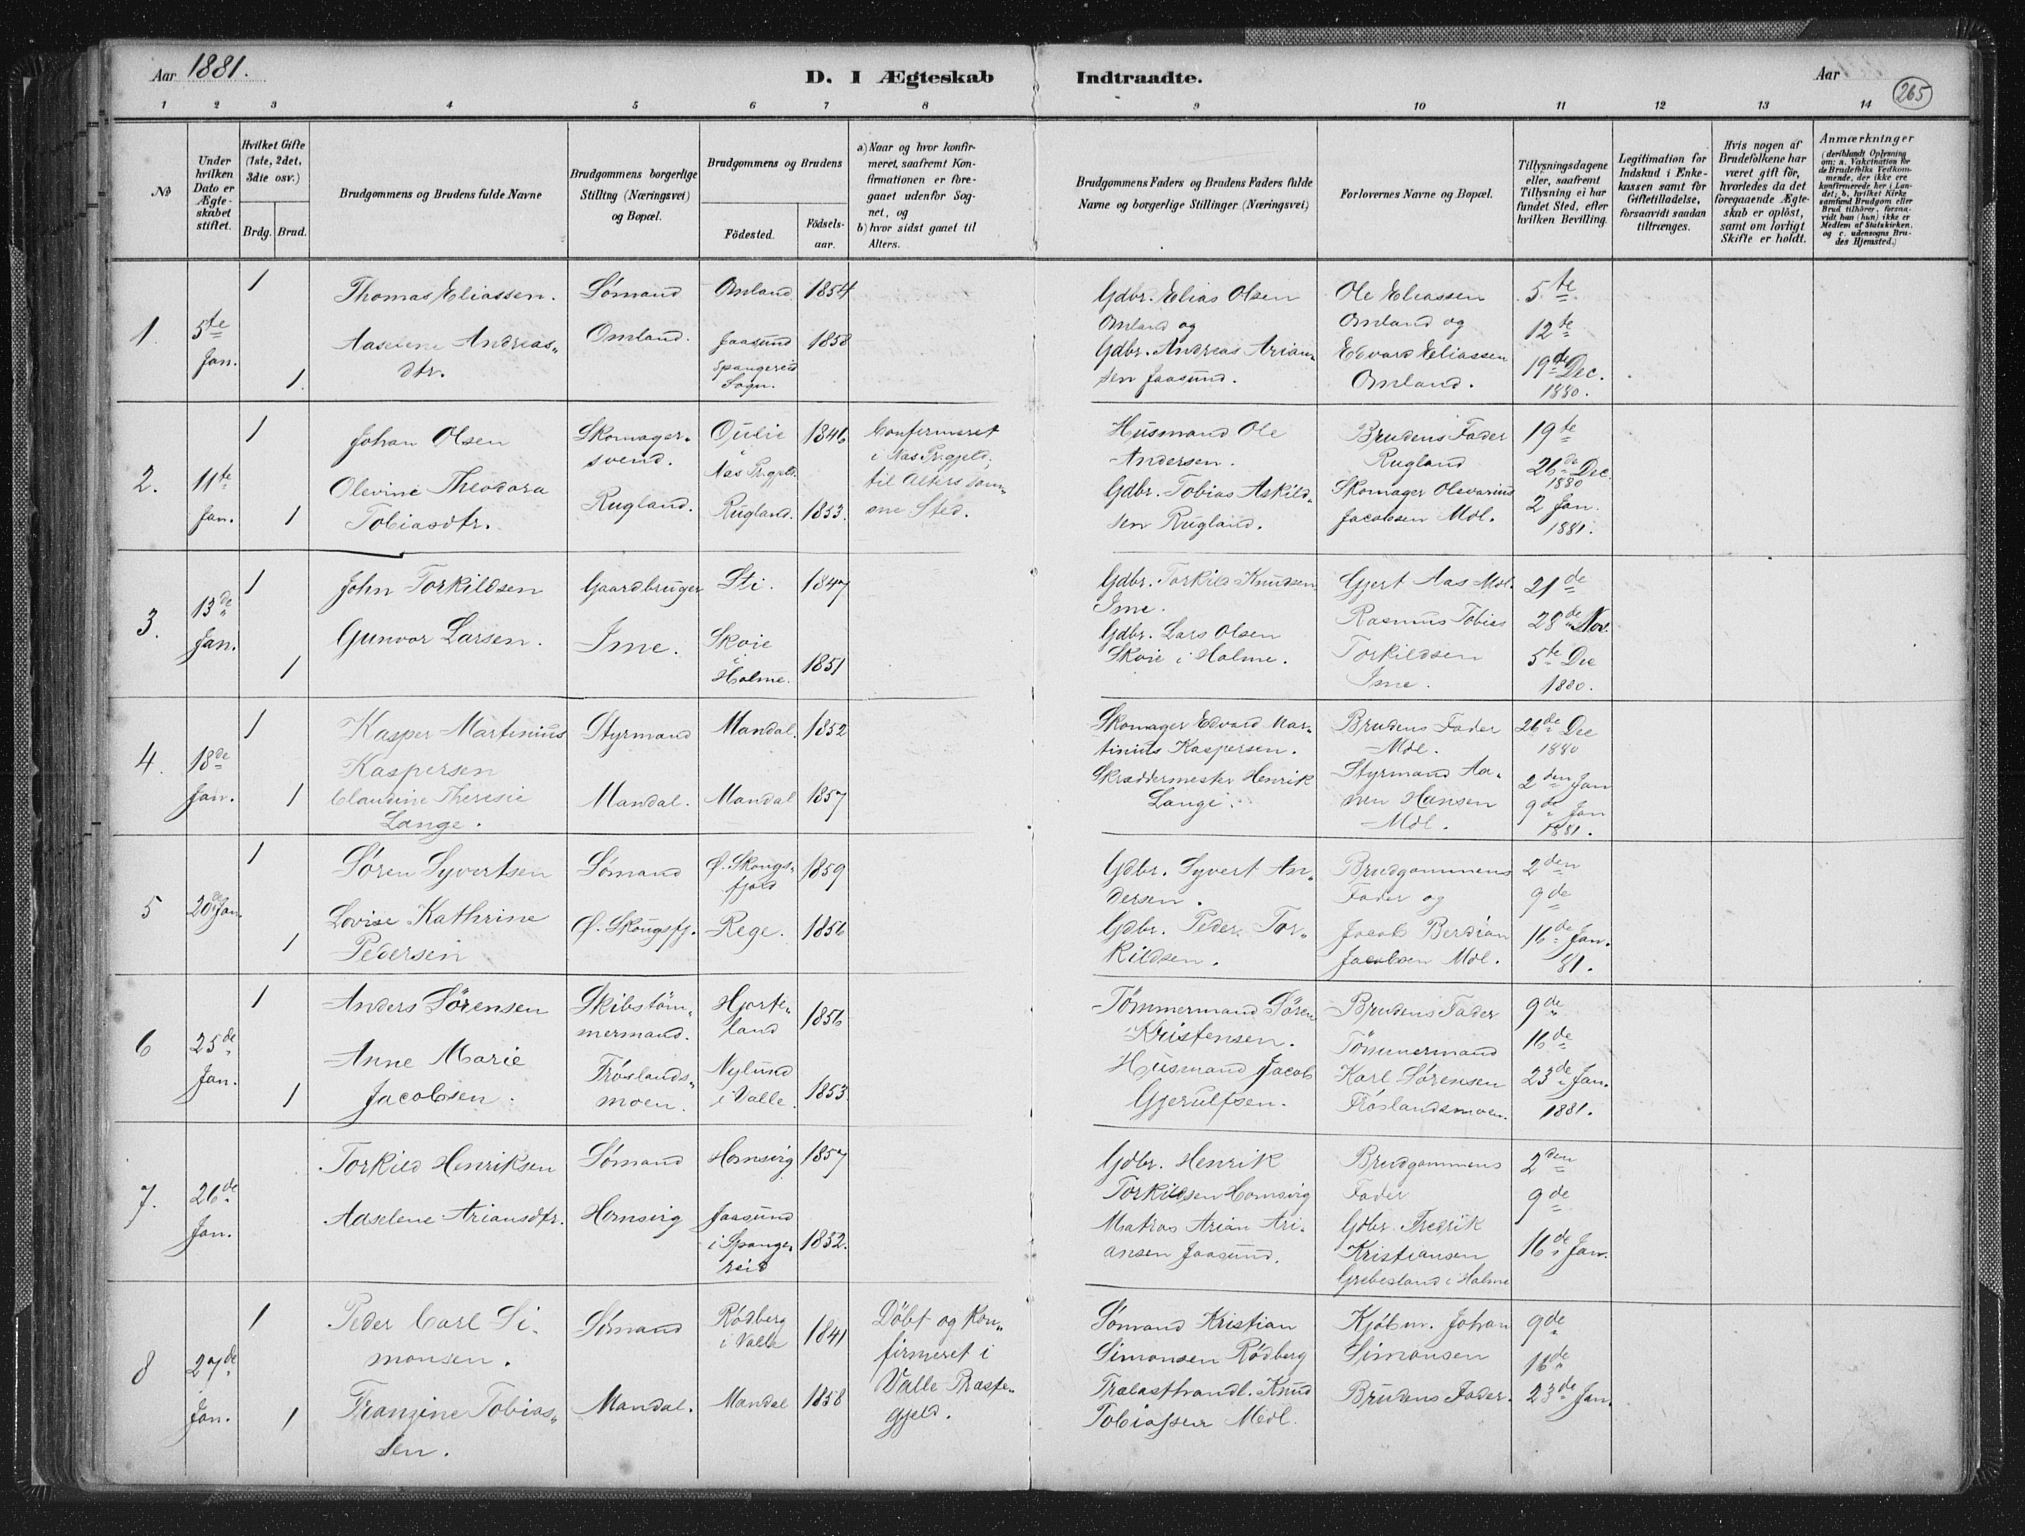 Aar 1881. D. I Ægteskab Indtraadte. Aar 265
1 2 3 4 5 6 7 8 9 10 11 12 13 14
No
Under hvilken Dato er Ægteskabet stiftet.
Hvilket Gifte (1ste, 2det, 3die osv.)
Brdg. Brud.
Brudgommens og Brudens fulde Navne
Brudgommens borgerlige Stilling (Næringsvei) og Bopæl.
Brudgommens og Brudens
Födested. Födsels-aar.
a) Naar og hvor konfirmeret, saafremt Konfirmationen er foregaaet udenfor Sognet, og
b) hvor sidst gaaet til Alters.
Brudgommens Faders og Brudens Faders fulde Navne og borgerlige Stillinger (Næringsvei)
Forlovernes Navne og Bopæl.
Tillysningsdagene eller, saafremt Tillysning ei har fundet Sted, efter hvilken Bevilling.
Legitimation for Indskud i Enkekassen samt for Giftetilladelse, forsaavidt saadan tiltrænges.
Hvis nogen af Brudefolkene har været gift för, hvorledes da det foregaaende Ægteskab er oplöst, samt om lovligt Skifte er holdt.
Anmærkninger
(deriblandt Oplysning om: a. Vakcination for de Brudefolks Vedkommende, der ikke ere konfirmerede her i Landet; b. hvilket Kirkesamfund Brudgom eller Brud tilhörer, forsaavidt han (hun) ikke er Medlem af Statskirken. og c. udensogns Brudes Hjemsted.)
1. 5te Jan. 1 1.
Thomas Eliassen.
Aaselene Andreas-
dtr.
Sømand
Omland.
Omland 1854
Jaasund 1858
Spangereid
Sogn.
Gdbr. Elias Olsen
Omland og
Gdbr. Andreas Arian-
sen Jaasund.
Ole Eliassen
Omland og
Edvard Eliassen
Omland.
5te
12te
19de Dec.
1880.
2. 11te Jan. 1 1
Johan Olsen
Olevine Theodora
Tobiasdtr.
Skomager-
svend.
Rugland.
i
Nas Pr.gjeld. 1846
Rugland. 1853.
Confirmeret
i Nas Pr.gjeld;
til Alters sam-
me Sted.
Husmand Ole
Andersen.
Gdbr. Tobias Askild-
sen Rugland.
Brudens Fader
Rugland
Skomager Olevarius
Jacobsen Mdl.
19te
26de Dec
1880
2 Jan.
1881.
3. 13de Jan. 1 1
John Torkildsen
Gunvor Larsen.
Gaardbruger
Ime.
Sti. 1847
Skoie
i
Holme. 1851
Gdbr. Torkild Knudsen
Ime.
Gdbr. Lars Olsen
Skoie i Holme.
Gjert Aas Mdl.
Rasmus Tobias
Torkildsen
Ime.
21de
28de Nov.
5te Dec
1880.
4. 18de Jan. 1 1
Kasper Martinius
Kaspersen
Claudine Theresie
Lange.
Styrmand
Mandal.
Mandal. 1852
Mandal 1857
Skomager Edvard Mar-
tinius Kaspersen.
Skræddermester Henrik
Lange.
Brudens Fader
Mdl.
Styrmand Aa-
nen Hansen
Mdl.
26de Dec
1880
2den Jan
9de Jan
1881.
5 20de Jan. 1 1
Søren Syvertsen
Lovise Kathrine
Pedersen
Sømand
Ø. Skougsfj.
Ø. Skougs-
fjeld 1859
Rege. 1856
Gdbr. Syvert An-
dersen.
Gdbr. Peder Tor-
kildsen.
Brudgommens
Fader og
Jacob Berdian
Jacobsen Mdl.
2den
9de
16de Jan.
81.
6 25de Jan. 1 1
Anders Sørensen
Anne Marie
Jacobsen.
Skibstöm-
mermand.
Frøslands-
moen.
Hjorte-
land 1856
Nylund
i Valle. 1853
Tømmermand Søren
Kristensen.
Husmand Jacob
Gjerulfsen.
Brudens Fader
Tømmermand
Karl Sørensen
Frøslandsmoen.
9de
16de
23de Jan.
1881.
7. 26de Jan.
Torkild Henriksen
Adselene Ariansdtr.
Sømand
Homsvig
Homsvig 1857
Jaasund
i Spange-
reid 1852.
Gdbr. Henrik
Torkildsen Homsvig
Matros Arian Ari-
ansen Jaasund.
Brudgommens
Fader
Gdbr. Fredrik
Kristiansen
Grebesland i Halme
2den
9de
16de Jan.
8 27de Jan. 1 1
Peder Carl Si-
monsen.
Franzine Tobias-
sen.
Sømand
Mandal.
Rødberg
i Valle 1841
Mandal 1858
Døbt og Kon-
firmeret i
Valle Præste-
gjeld.
Sømand Kristian
Simonsen Rødberg
Trælasthandl. Knud
Tobiassen Mdl.
Kjöbm. Johan
Simonsen
Brudens Fader.
9de
16de
23de Jan.